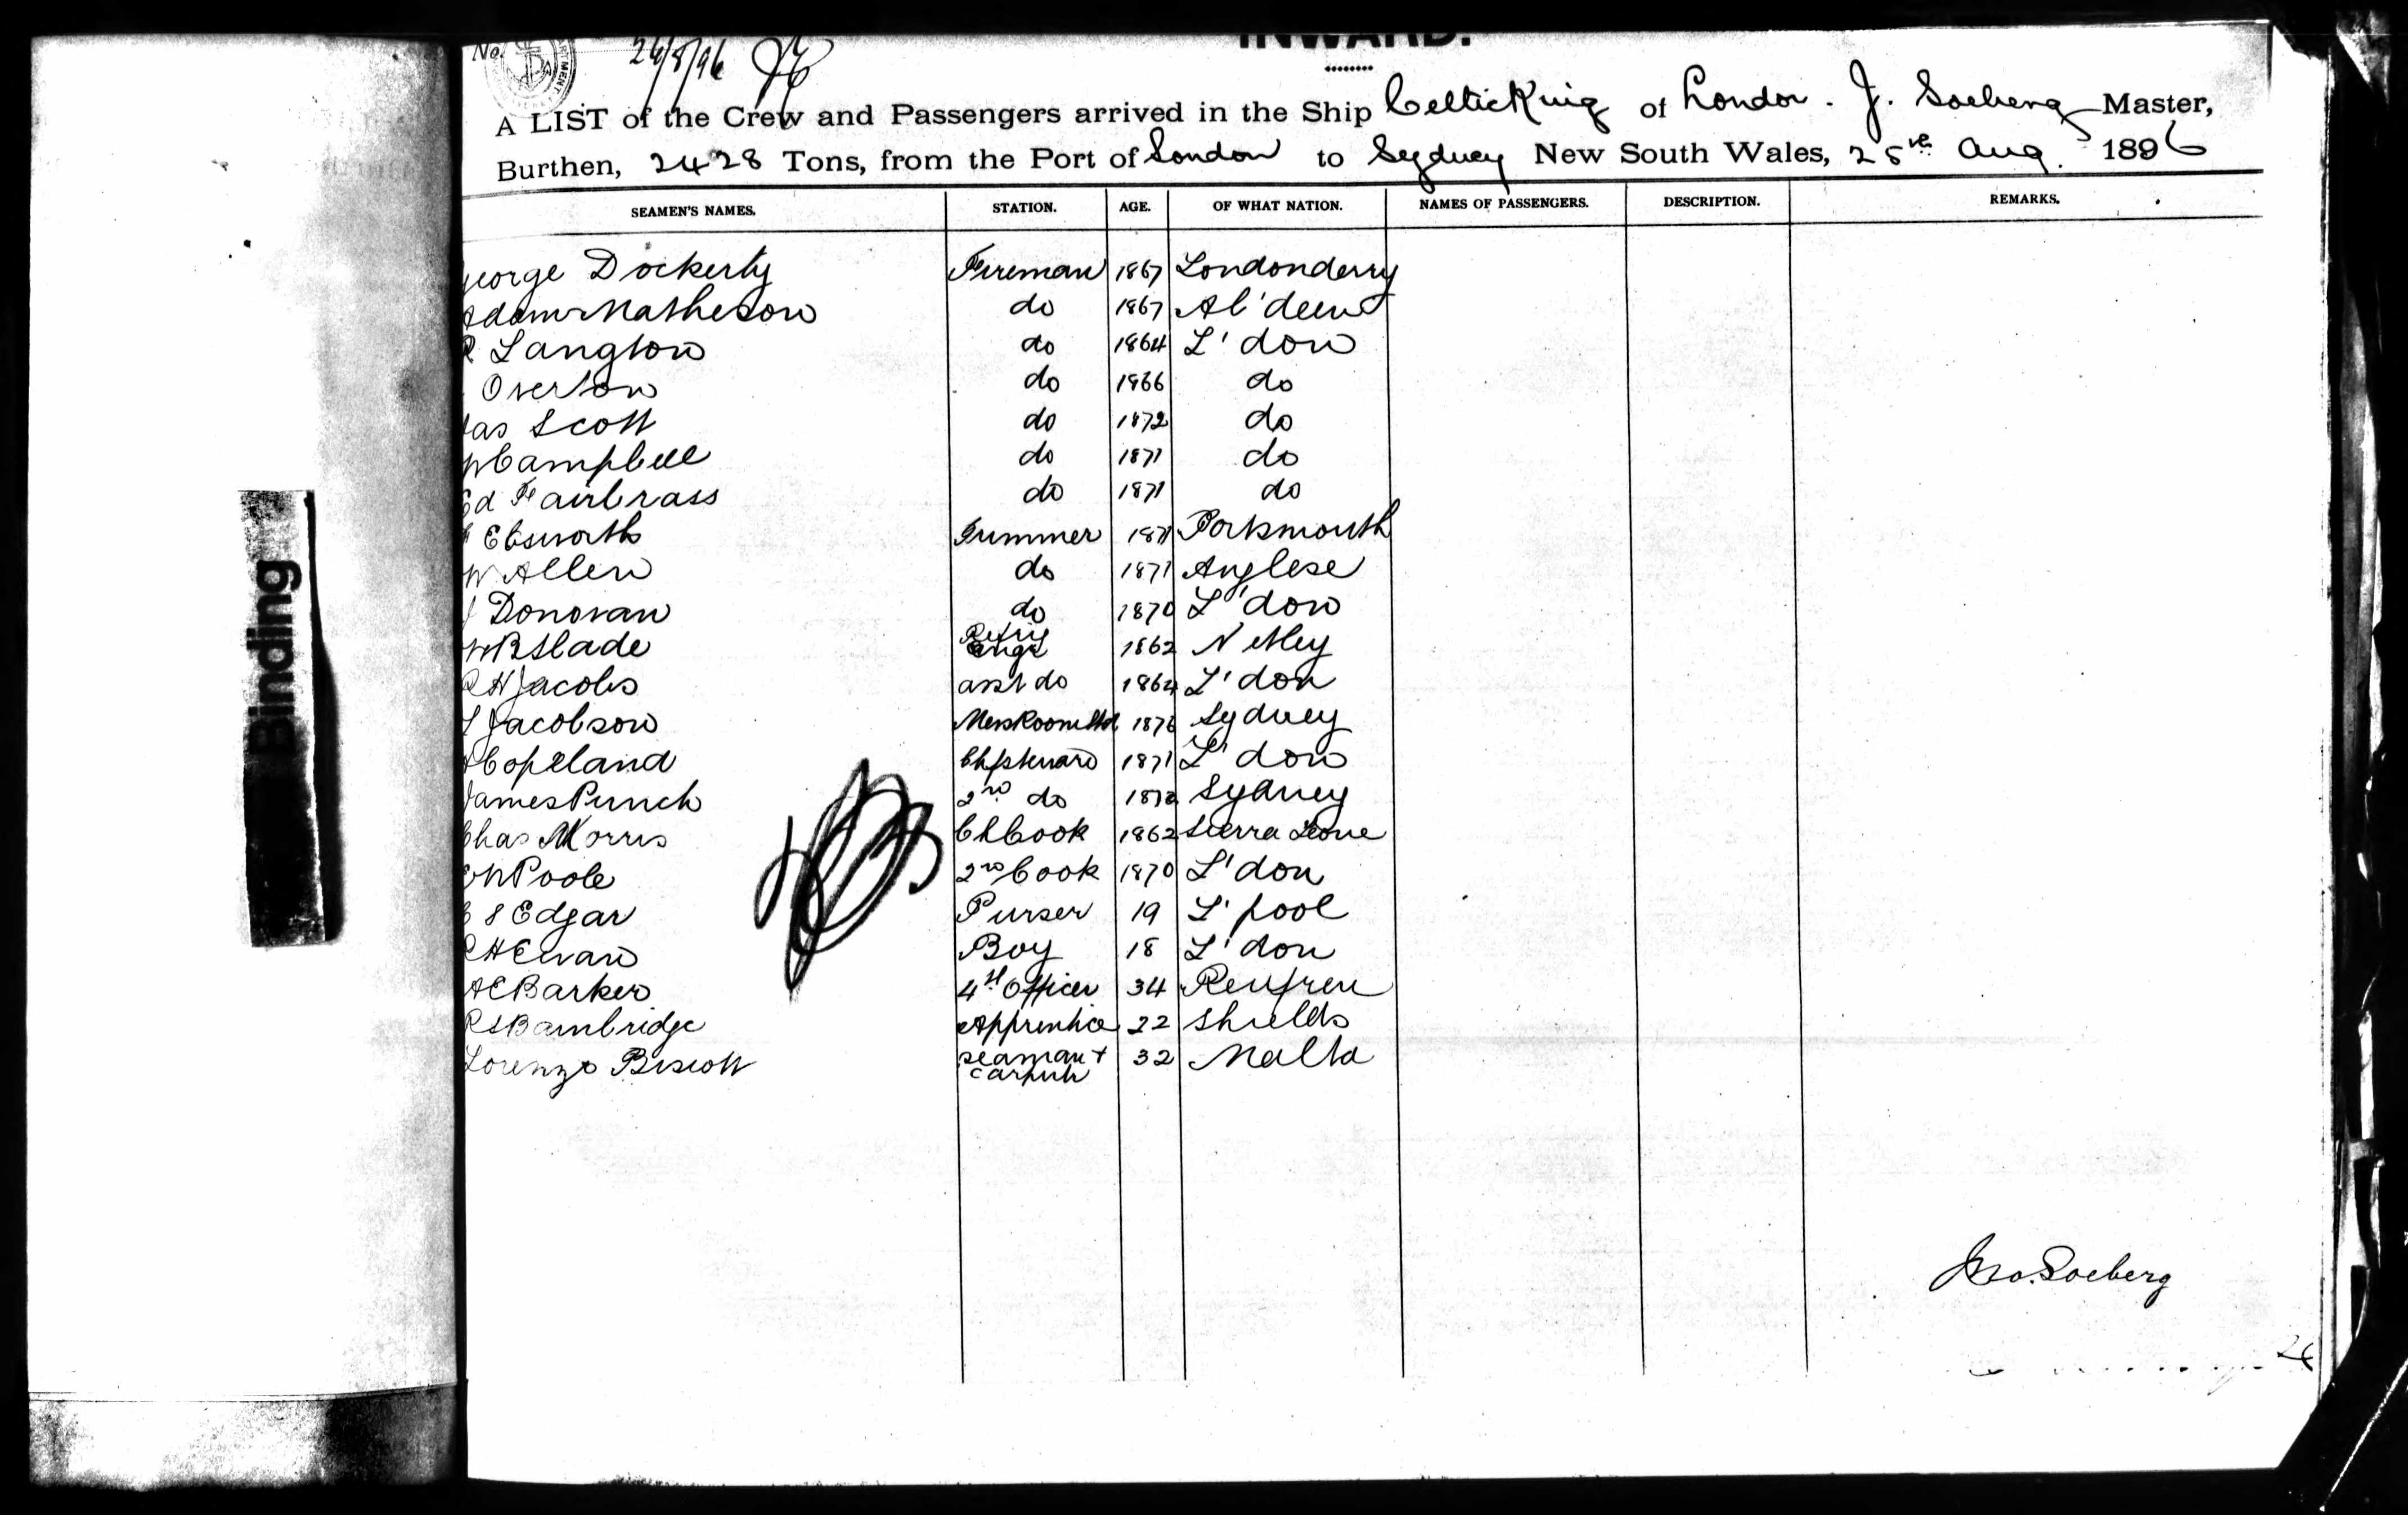 INWARD.
No. 26/8/96
A LIST of the Crew and Passengers arrived in the Ship Celtic King of London. J. Soeberg Master,
Burthen, 2428 Tons, from the Port of London to Sydney New South Wales, 25 Aug. 1896
SEAMEN'S NAMES. STATION. AGE. OF WHAT NATION. NAMES OF PASSENGERS. DESCRIPTION. REMARKS.
George Dockerty Fireman 1867 Londonderry
Adam Matheson do 1867 Ab'deen
R Langton do 1864 L'don
Overton do 1866 do
Jas Scott do 1872 do
Campbell do 1871 do
Ed Fairbrass do 1871 do
Ebsworth Trimmer 1871 Portsmouth
W Allen do 1871 Anglese
J Donovan do 1870 L'don
W B Slade Refrig Engr 1862 Netley
R H Jacobs asst do 1864 L'don
L Jacobson Mess Room Std 1876 Sydney
Copeland Chf Steward 1871 L'don
James Punch 2nd do 1872 Sydney
Chas Morris Ch Cook 1862 Sierra Leone
Poole 2nd Cook 1870 L'don
E S Edgar Purser 19 L'pool
R H Ewan Boy 18 L'don
A E Barker 4th Officer 34 Renfrew
R S Bambridge Apprentice 22 Shields
Lorenzo Biscott seaman + 32 Malta
carpntr
Binding
Jno. Soeberg